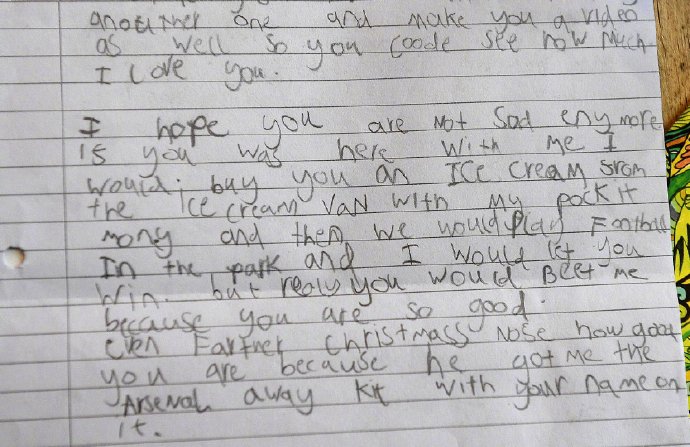 another one and make you a video
as well so you coode see how much
I love you.
I hope you are not sad eny more
is you was here with me I
would buy you an ICe cream srom
the Ice cream van with my pockit
mony and then we would play Football
In the park and I would let you
win. but realy you would Beet me
because you are so good.
even Farther christmass nose how good
you are because he got me the
Arsenal away kit with your name on
it.